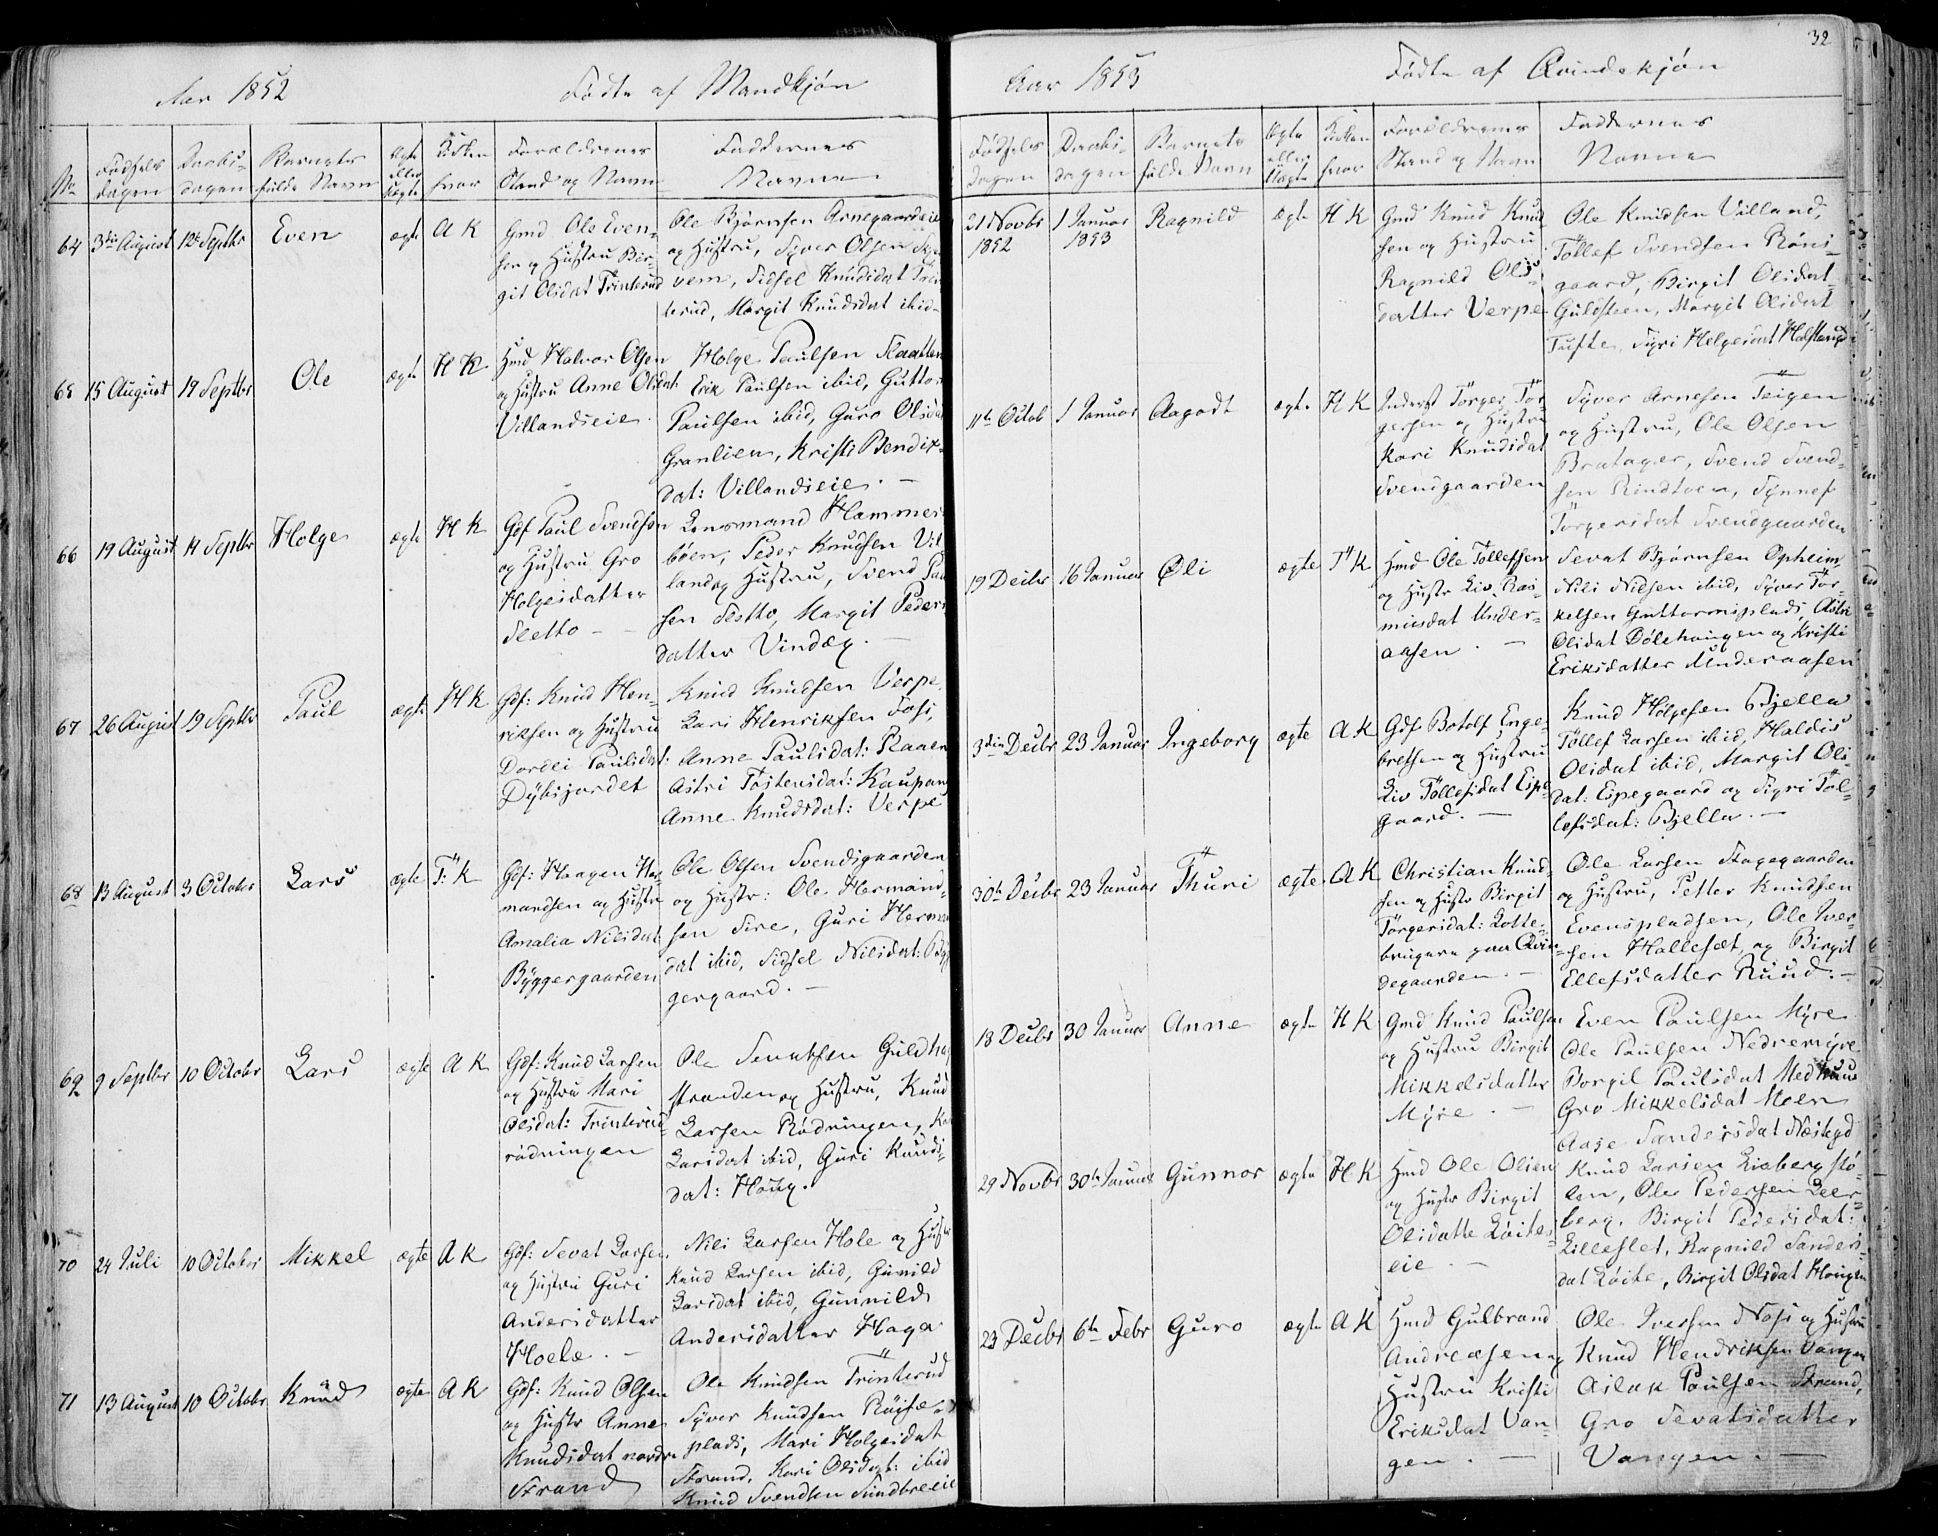 Aar 1852 Fødte af Mandkjøn
No Fødsels dagen Daabs- dagen Barnets fulde Navn Ægte eller Uægte Kirken hvor Forældrenes Stand og Navn Faddernes Navne
64 3die August 12te Septbr Even ægte A K
Gmd Ole Even-
sen og Hustru Bir-
git Olsdat Trinterud
Ole Bjørnsen Arnegaardeie
og Hustru, Syver Olsen
vem, Sidsel Knudsdat Trin
terud, Margit Knudsdat ibid-
65 15 August 19 Septbr Ole ægte H K
Hmd Halvor Olsen
og Hustru Anne Olsdat
Villandseie.
Holge Paulsen Slaatten
Erik Paulsen ibid, Guttor
Paulsen ibid, Guro Olsda
Granlien, Kristi Bendix-
dat: Villandseie. —
66 19 August 19 Septbr Holge ægte H K
Gdf Paul Svendsen
og Hustru Gro
Holgesdatter
Sletto —
Lensmand Hammers-
bøen, Peder Knudsen Vil
land og Hustru, Svend Pau
sen Sletto, Margit Peders
datter Vindæg. —
67 26 August 19 Septbr Paul ægte H K
Gdf: Knud Hen-
riksen og Hustru
Dordei Paulsdat:
Dybsjordet
Knud Knudsen Verpe,
Lars Henriksen
Anne Paulsdat: Raaen
Astri Tostensdat: Kaupang
Anne Knudsdat: Verpe
68 13 August 3 October Lars ægte T: K
Gdf: Haagen Her
mandsen og Hustr
Amalia Nilsdat
Byggergaarden
Ole Olsen Svendsgaarden
og Hustr: Ole Hermand-
sen Sire, Guri Herman
dat ibid, Sidsel Nilsdat: Byg
gergaard. —
69 9 Septbr 10 October Lars ægte A K
Gdf: Knud Larsen
og Hustru Mari
Olsdat: Trinterud-
rødningen
Ole Sevatsen Guldha
stranden og Hustru, Knud
Larsen Rødningen, Ka
Larsdat ibid, Guri Knuds-
dat: Houg.
70 24 Juli 10 October Mikkel ægte A K
Gdf: Sevat Larsen
og Hustru Guri
Andersdatter
Hoele. —
Nils Larsen Hole og Hustr
Knud Larsen ibid, Gunild
Larsdat ibid, Gunnild
Andersdatter Haga
71 13 August 10 October Knud ægte A K
Gdf: Knud Olsen
og Hustr Anne
Knudsdat nordre
Strand
Ole Knudsen Trinterud
Syver Knudsen Røise-
plads, Mari Holgesdat
Strand, Kari Olsdat: ibid
Knud Svendsen Sundbreeie
32
Aar 1853 Fødte af Qvindekjøn
Fødsels dagen Daabs- dagen Barnets fulde Navn Ægte eller Uægte Kirken hvor Forældrenes Stand og Navn Faddernes Navne
21 Novbr 1852 1 Januar 1853 Ragnild ægte H K
Gmd Knud Knud
sen og Hustru
Ragnild Ols-
datter Verpe
Ole Knudsen Villand,
Tollef Svendsen Røns-
gaard, Birgit Olsdat
Guldsteen, Margit Olsdat
Tufte, Sigri Helgesdat Halstensgd
11te Octob 1 Januar Aagodt ægte H K
Inderst Torger Tor-
gersen og Hustru
Kari Knudsdat
Svensgaarden
Syver Arnesen Teigen
og Hustru, Ole Olsen
Bratager, Svend Svend-
sen Rindtoen, Synnef
Torgersdat Svendsgaarden
19 Decbr 16 Januar Oli ægte T K
Hmd Ole Tollefsen
og Hustr Liv Ras-
musdat Under-
aasen. —
Sevat Bjørnsen Opheim,
Nils Nilsen ibid, Syver Tor-
kelsen Guttormsplads, Astri
Olsdat Dølehaugen og Kristi
Eriksdatter Underaasen
3die Decbr 23 Januar Ingeborg ægte A K
Gdf Botolf Enge-
bretsen og Hustru
Liv Tollefsdat Espe-
gaard. —
Knud Holgesen Bjella
Tollef Larsen ibid, Haldis
Olsdat ibid, Margit Ols-
dat: Espegaard og Sigri Tol-
lefsdat: Bjella. —
30te Decbr 23 Januar Thuri ægte A K
Christian Knud-
sen og Hustr Birgit
Torgersdat: Lotte-
brugere paa Qvin-
degaarden. —
Ole Larsen Skagegaarden
og Hustru, Petter Knudsen
Evenspladsen, Ole Iver-
sen Hallesæt og Birgit
Ellefsdatter Ruud. —
18 Decbr 30 Januar Anne ægte H K
Gmd Knud Paulsen
og Hustru Birgit
Mikkelsdatter
Myre. —
Even Paulsen Myre
Ole Paulsen Nedremyre
Borgil Paulsdat Medhuus
Gro Mikkelsdat Moen
Aase Sandersdat Næsegd
29 Novbr 30te Januar Gunnor ægte H K
Hmd Ole Olsen
og Hustr Birgit
Olsdatte Løite-
eie. —
Knud Larsen Liabergstø-
len, Ole Pedersen Leer-
berg, Birgit Pedersdat:
Lilleslet, Ragnild Sanders-
dat Løite, Birgit Olsdat Hougen
23 Decbr 6te Febr Guro ægte A K
Hmd Gulbrand
Andreasen og
Hustru Kristi
Eriksdat Van-
gen. —
Ole Iversen Næs og Hustru
Knud Hendriksen Vangen
Aslak Paulsen Strand,
Gro Sevatsdatter
Vangen. —